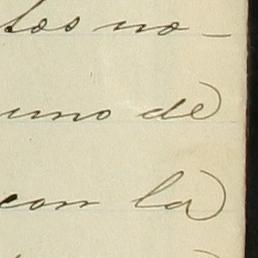 tos no-
uno de
con la